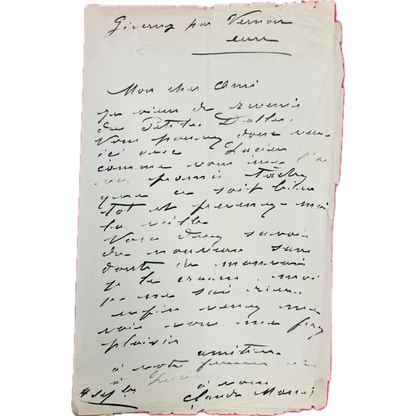 Giverny par Vernon
eure
Mon cher Ami
je viens de revenir
des Petites Dalles.
Vous pouvez donc venir
ici avec Lucien
comme vous me l'
avez promis Tachez
que ce soit bien
tot et prevenez-moi
la veille
Vous devez savoir
du nouveau sans
doute du mauvais
je le crains. moi
je ne sais rien.
enfin venez me
voir vous me ferez
plaisir
amitiés
à votre femme et
à Lucien
à vous
4 sept Claude Monet